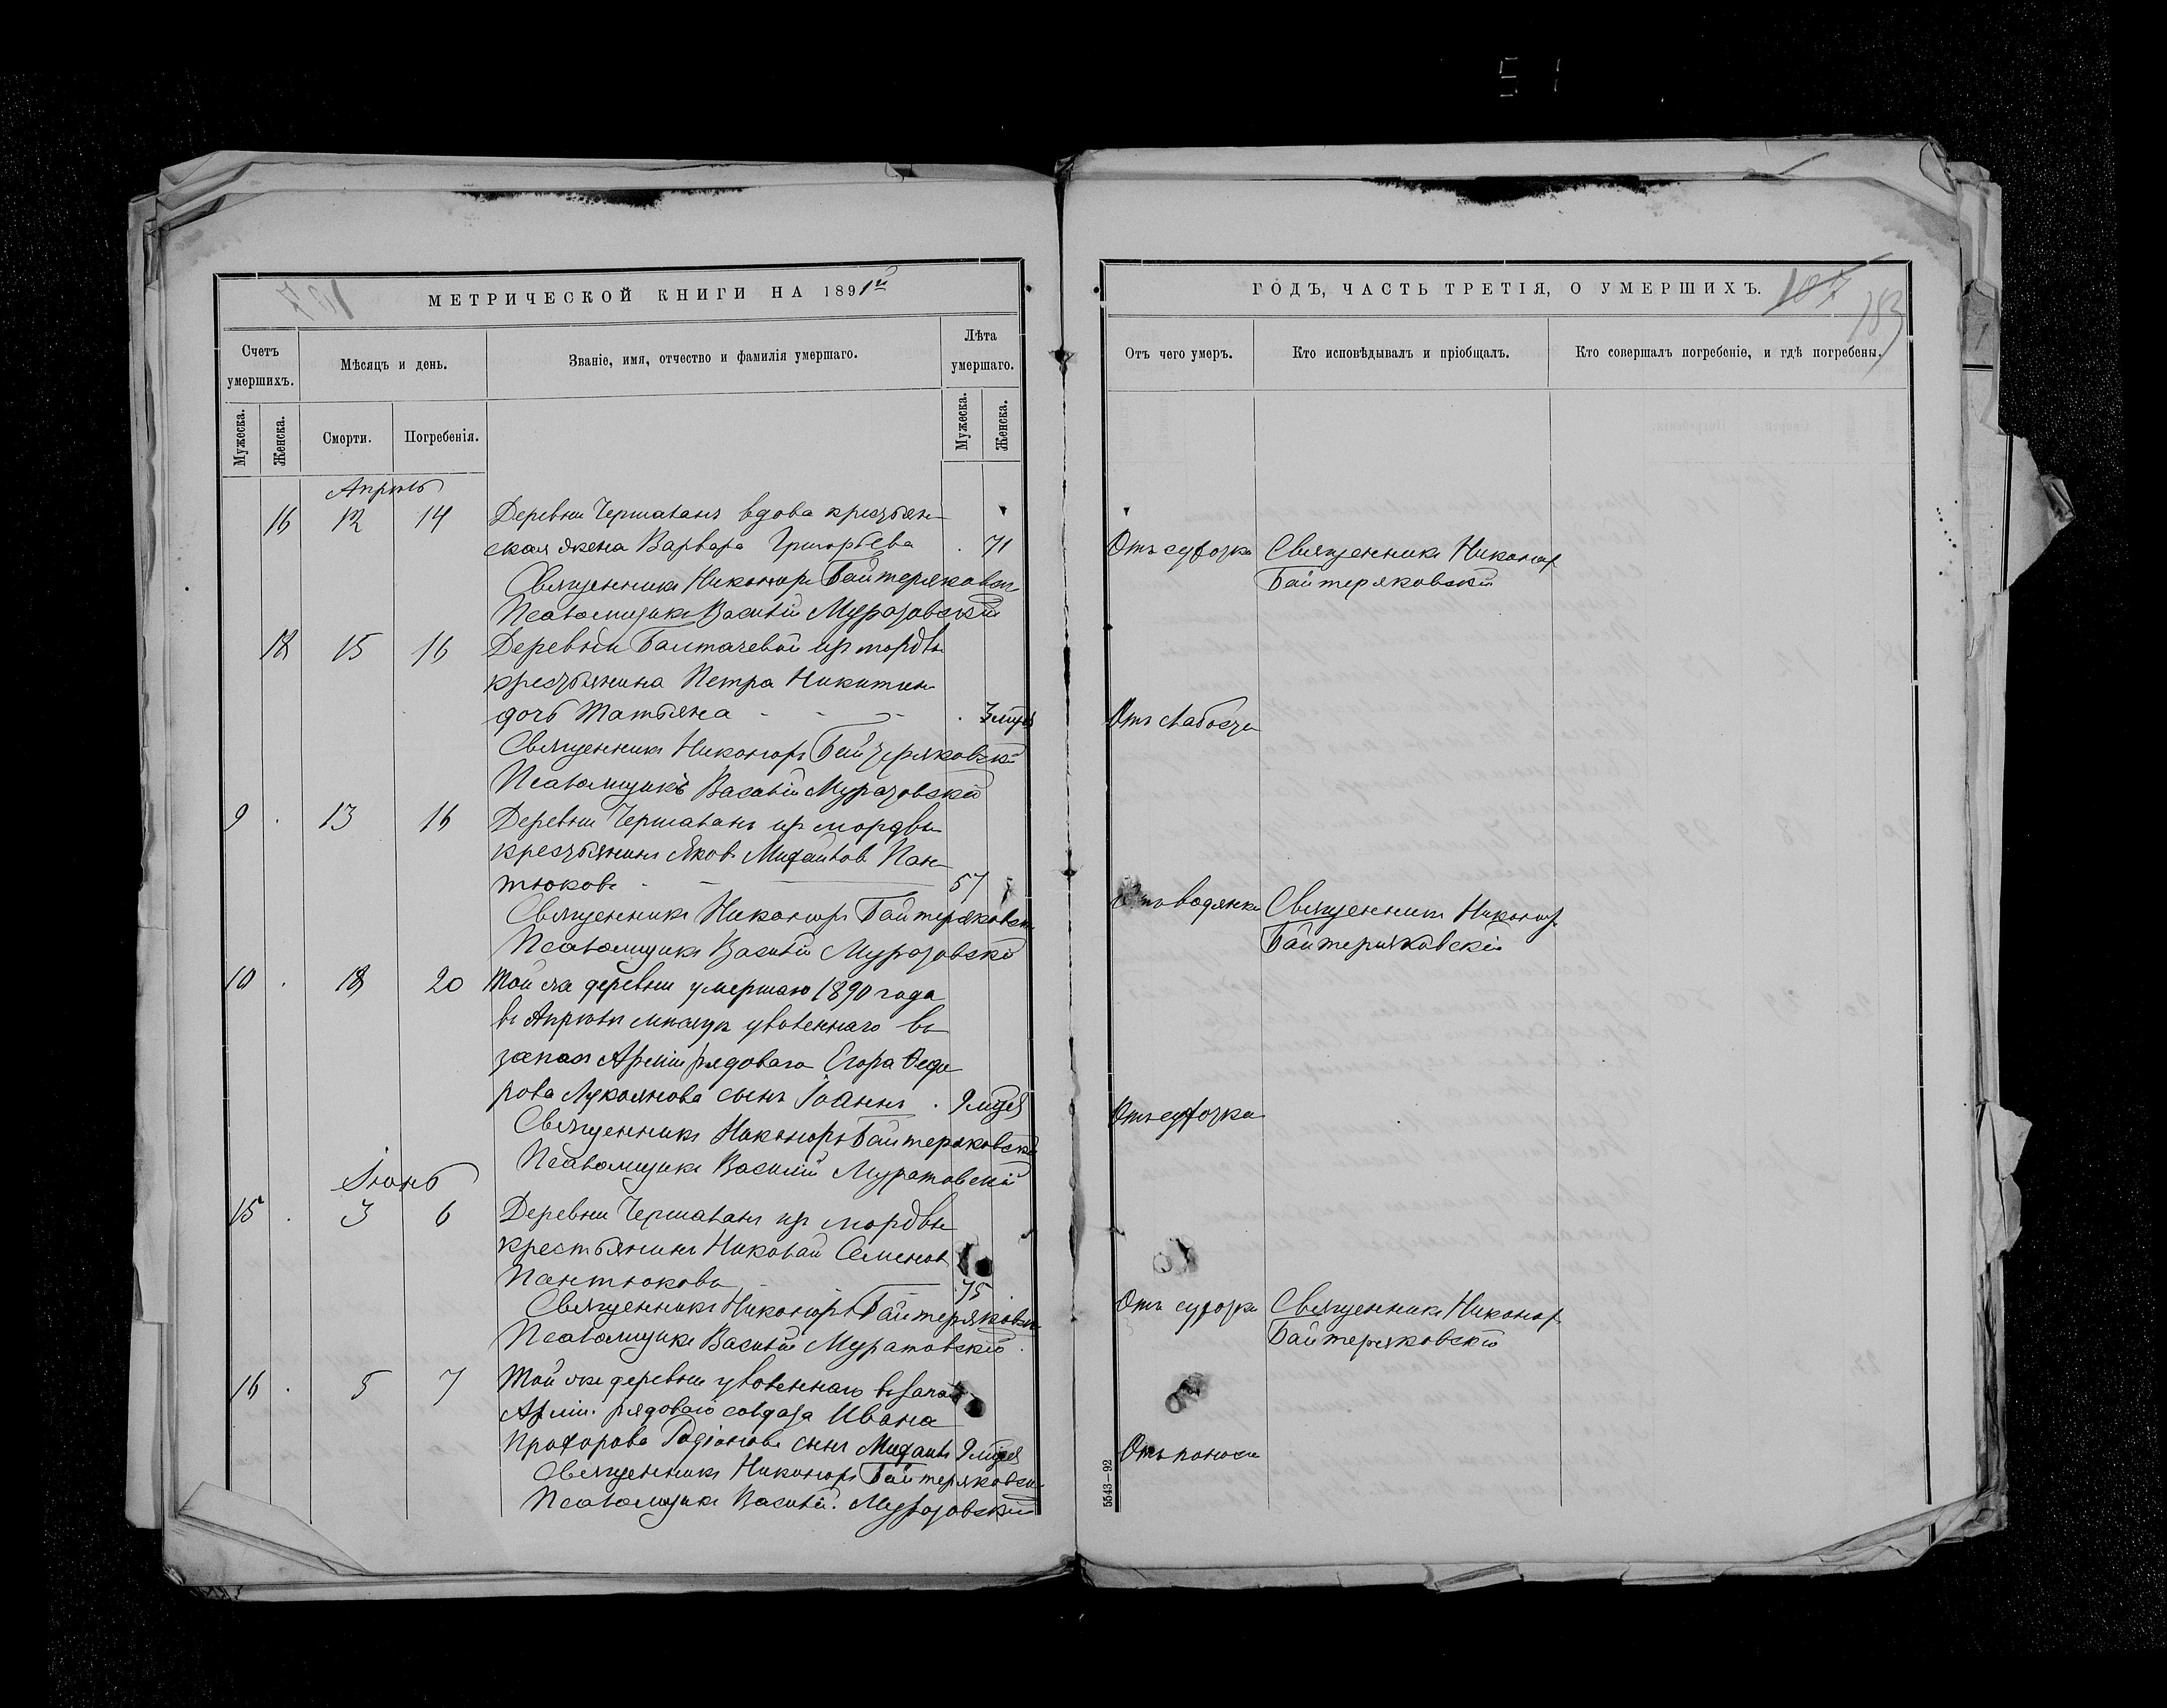 51
МЕТРИЧЕСКОЙ КНИГИ НА 1891й
Счетъ умершихъ.
Мѣсяцъ и день.
Званіе, имя, отчество и фамилія умершаго.
Лѣта умершаго.
Мужеска.
Женска.
Смерти.
Погребенія.
Мужеска.
Женска.
Апрель
16 12 14 Деревни Чершалань вдова крестьян-
ская жена Варвара Григорьева 71
Священникъ Никаноръ Байтеряковскій
Псаломщикъ Василій Муратовскій
18 15 16 Деревни Балтачевой из мордвы
крестьянина Петра Никитин
дочь Татьяна 3 мца
Священникъ Никаноръ Байтеряковскій
Псаломщикъ Василій Муратовскій
9 13 16 Деревни Чершалань из мордвы
крестьянинъ Яков Михайлов Пан-
тюковъ 57
Священникъ Никаноръ Байтеряковскій
Псаломщикъ Василій Муратовскій
10 18 20 Той же деревни умершаго 1890 года
въ Апреле месяце уволеннаго въ
запас Арміи рядоваго Егора Федо
рова Лукоянова сынъ Іоаннъ 9 мцев
Священникъ Никаноръ Байтеряковскій
Псаломщикъ Василій Муратовскій
Іюнь
15 3 6 Деревни Чершалань из мордвы
крестьянинъ Николай Семенов
Пантюковъ 75
Священникъ Никаноръ Байтеряковскій
Псаломщикъ Василій Муратовскій
16 5 7 Той же деревни уволеннаго въ запас
Арміи рядоваго солдата Ивана
Прохорова Родіонова сынъ Михаилъ 9 мцев
Священникъ Никаноръ Байтеряковскій
Псаломщикъ Василій Муратовскій
ГОДЪ, ЧАСТЬ ТРЕТІЯ, О УМЕРШИХЪ.
107
183
Отъ чего умеръ.
Кто исповѣдывалъ и пріобщалъ.
Кто совершалъ погребеніе, и гдѣ погребены.
Отъ судорги Священникъ Никанор
Байтеряковскій
Отъ слабости
Отъ водянки Священникъ Никанор
Байтеряковскій
Отъ судорги
Отъ судорги Священникъ Никанор
Байтеряковскій
Отъ поноса
5543—92